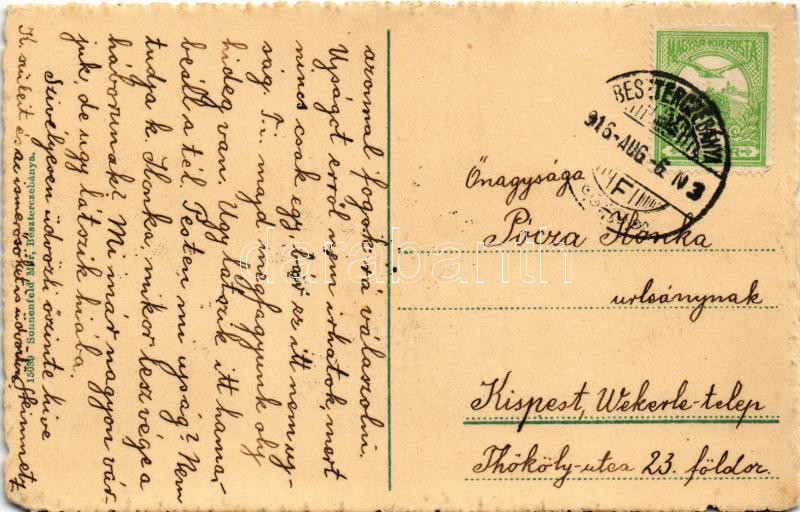 azonnal fogok rá válaszolni.
Ujságot erről nem irhatok, mert
nincs csak egy, bár ez itt nem uj-
ság. Ti. majd megfagyunk oly
hideg van. Ugy látszik itt hama-
beáll a tél. Pesten mi ujság? Nem
tudja k. Ilonka, mikor lesz vége a
háborunak? Mi már nagyon vár-
juk, de ugy látszik hiaba.
Szivélyesen üdvözli őszinte hive
K. szüleit és az ismerősöket is üdvözlöm
13036 Sonnenfeld Mór, Beszterczebánya.
MAGYAR KIR. POSTA
BESZTERCZEBÁNYA
916-AUG.-6. N3
F
Őnagysága
Pócza Ilonka
urleánynak
Kispest, Wekerle-telep
Thököly-utca 23. földsz.
darabanth